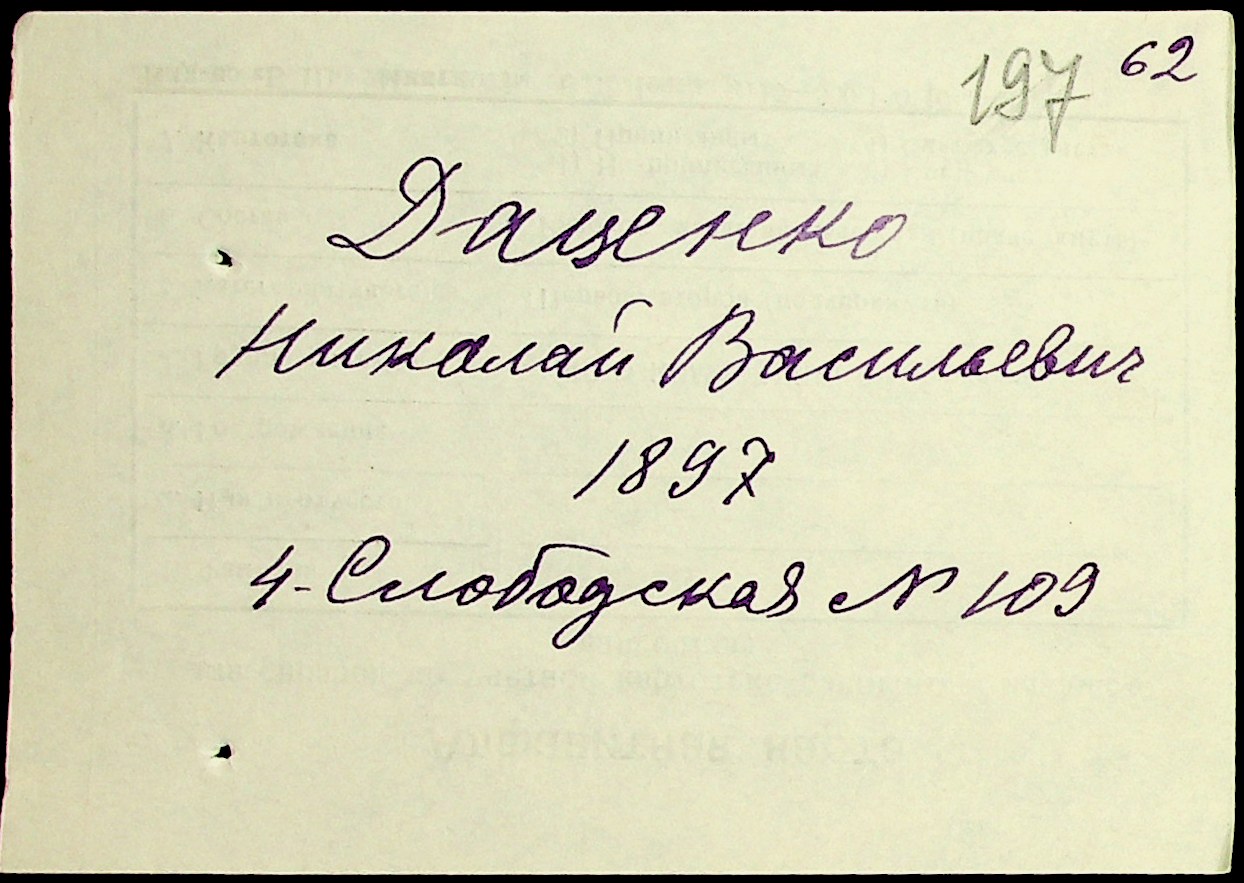 197 62
Даценко
Николай Васильевич
1897
4-Слободская № 109